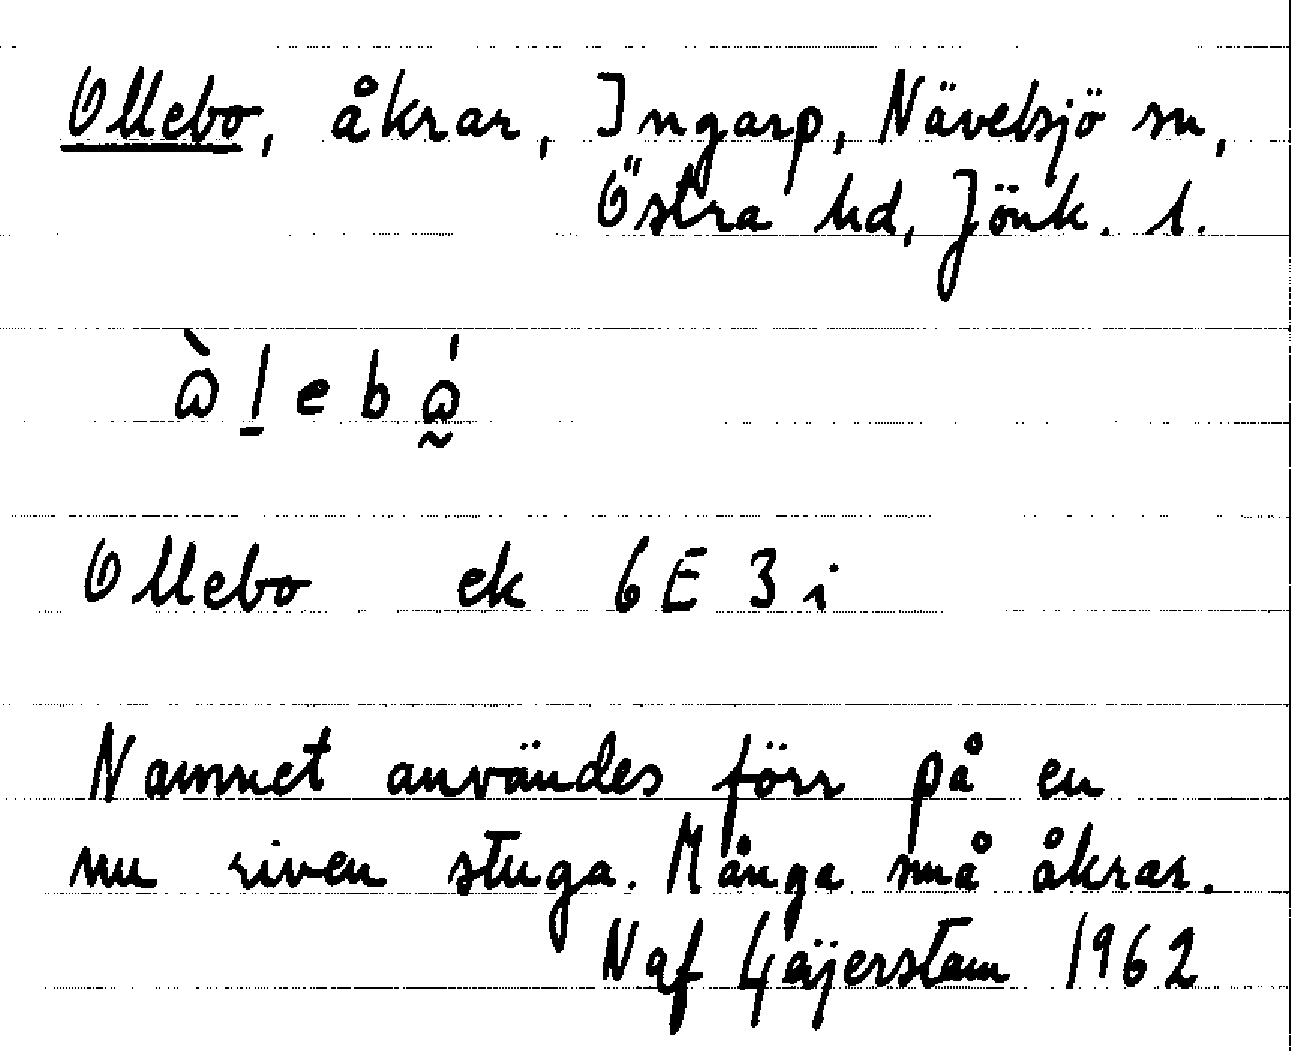 Ollebo, åkrar, Ingarp, Nävelsjö sn,
Östra hd, Jönk. l.
ɷ̀l̠ebɷ̰́
Ollebo ek 6E 3i
Namnet användes förr på en
nu riven stuga. Många små åkrar.
N af Geijerstam 1962